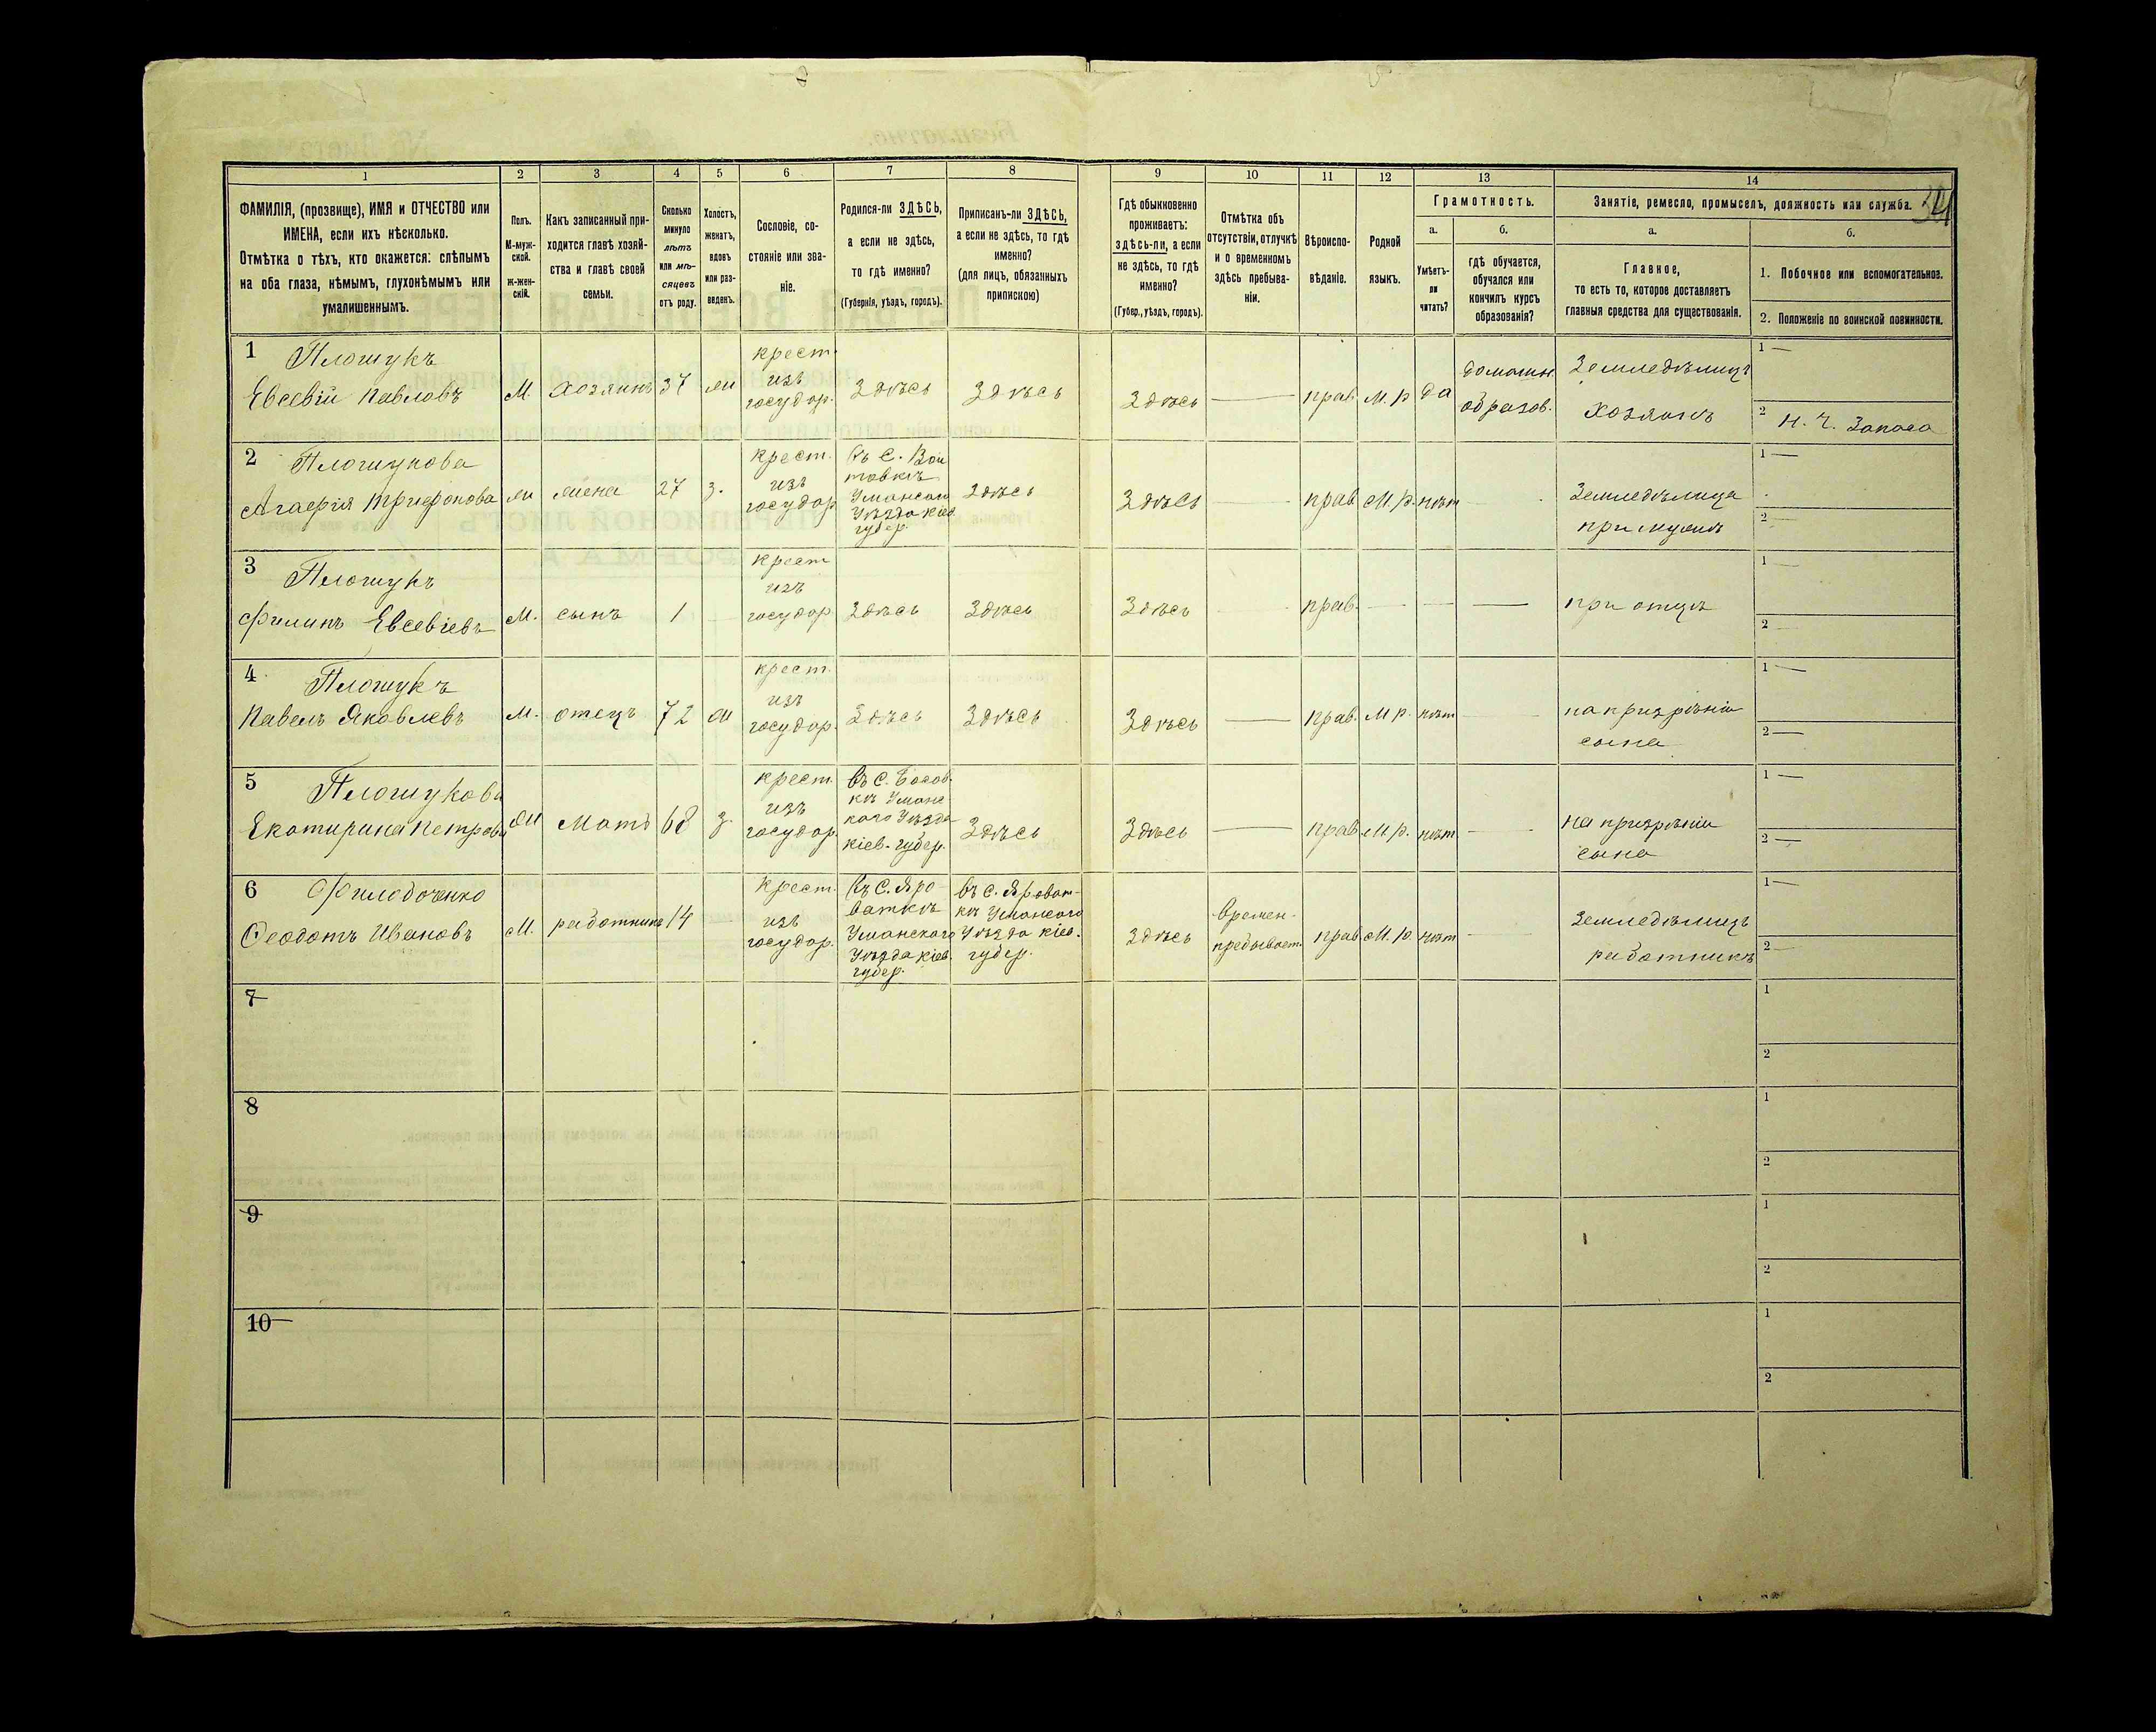 34
1 2 3 4 5 6 7 8 9 10 11 12 13 14
ФАМИЛІЯ, (прозвище), ИМЯ и ОТЧЕСТВО или
ИМЕНА, если ихъ нѣсколько.
Отмѣтка о тѣхъ, кто окажется: слѣпымъ
на оба глаза, нѣмымъ, глухонѣмымъ или
умалишеннымъ.
Полъ.
М-муж-
ской.
ж-жен-
скій.
Какъ записанный при-
ходится главѣ хозяй-
ства и главѣ своей
семьи.
Сколько
минуло
лѣтъ
или мѣ-
сяцевъ
отъ роду.
Холостъ,
женатъ,
вдовъ
или раз-
веденъ.
Сословіе, со-
стояніе или зва-
ніе.
Родился-ли ЗДѢСЬ,
а если не здѣсь,
то гдѣ именно?
(Губернія, уѣздъ, городъ).
Приписанъ-ли ЗДѢСЬ,
а если не здѣсь, то гдѣ
именно?
(для лицъ, обязанныхъ
припискою)
Гдѣ обыкновенно
проживаетъ:
здѣсь-ли, а если
не здѣсь, то гдѣ
именно?
(Губер., уѣздъ, городъ).
Отмѣтка объ
отсутствіи, отлучкѣ
и о временномъ
здѣсь пребыва-
ніи.
Вѣроиспо-
вѣданіе.
Родной
языкъ.
Грамотность.
а.
Умѣетъ-
ли
читать?
б.
гдѣ обучается,
обучался или
кончилъ курсъ
образованія?
Занятіе, ремесло, промыселъ, должность или служба.
а.
Главное,
то есть то, которое доставляетъ
главныя средства для существованія.
б.
1. Побочное или вспомогательное.
2. Положеніе по воинской повинности.
1 Плошукъ
Евсевій Павловъ
М.
хозяинъ
37
ж
крест.
изъ
государ.
Здѣсь
Здѣсь
Здѣсь
—
прав
м. р
да
домашн.
образов.
Земледѣлецъ
хозяинъ
1 —
2 Н. Ч. Запаса
2 Плошукова
Агафія Трифонова
ж
жена
27
з.
крест.
изъ
государ
Въ с. Вои
товкѣ
Уманска
Уѣзда кіев
губер.
Здѣсь
Здѣсь
—
прав
М. р.
нѣт
—
Земледѣлица
при мужѣ
1 —
2 —
3 Плошукъ
Филипъ Евсевіевъ
М.
сынъ
1
крест
изъ
государ
Здѣсь
Здѣсь
Здѣсь
—
прав.
—
—
—
при отцѣ
1 —
2 —
4 Плошукъ
Павелъ Яковлевъ
М.
отецъ
72
ж
крест.
изъ
государ.
Здѣсь
Здѣсь
Здѣсь
—
прав.
М р.
нѣт
—
на призрѣніи
сына
1 —
2 —
5 Плошукова
Екатирина Петрова
ж
Мать
68
з.
крест.
изъ
государ.
въ с. Босов-
кѣ Уманс
каго Уѣзда
кіев. губер.
Здѣсь
Здѣсь
—
прав
М р.
нѣт
—
на призрѣніи
сына
1 —
2 —
6 Филобоченко
Феодотъ Ивановъ
М.
работникъ
14
крест.
изъ
государ.
Въ с. Яро
ваткѣ
Уманскаго
Уѣзда кіев.
губер.
въ с. Яроват-
кѣ Уманскаго
Уѣзда кіев.
губер.
Здѣсь
времен-
пребывает.
прав
М. р.
нѣт
—
Земледѣлецъ
работникъ
1 —
2 —
7
1
2
8
1
2
9
1
2
10
1
2